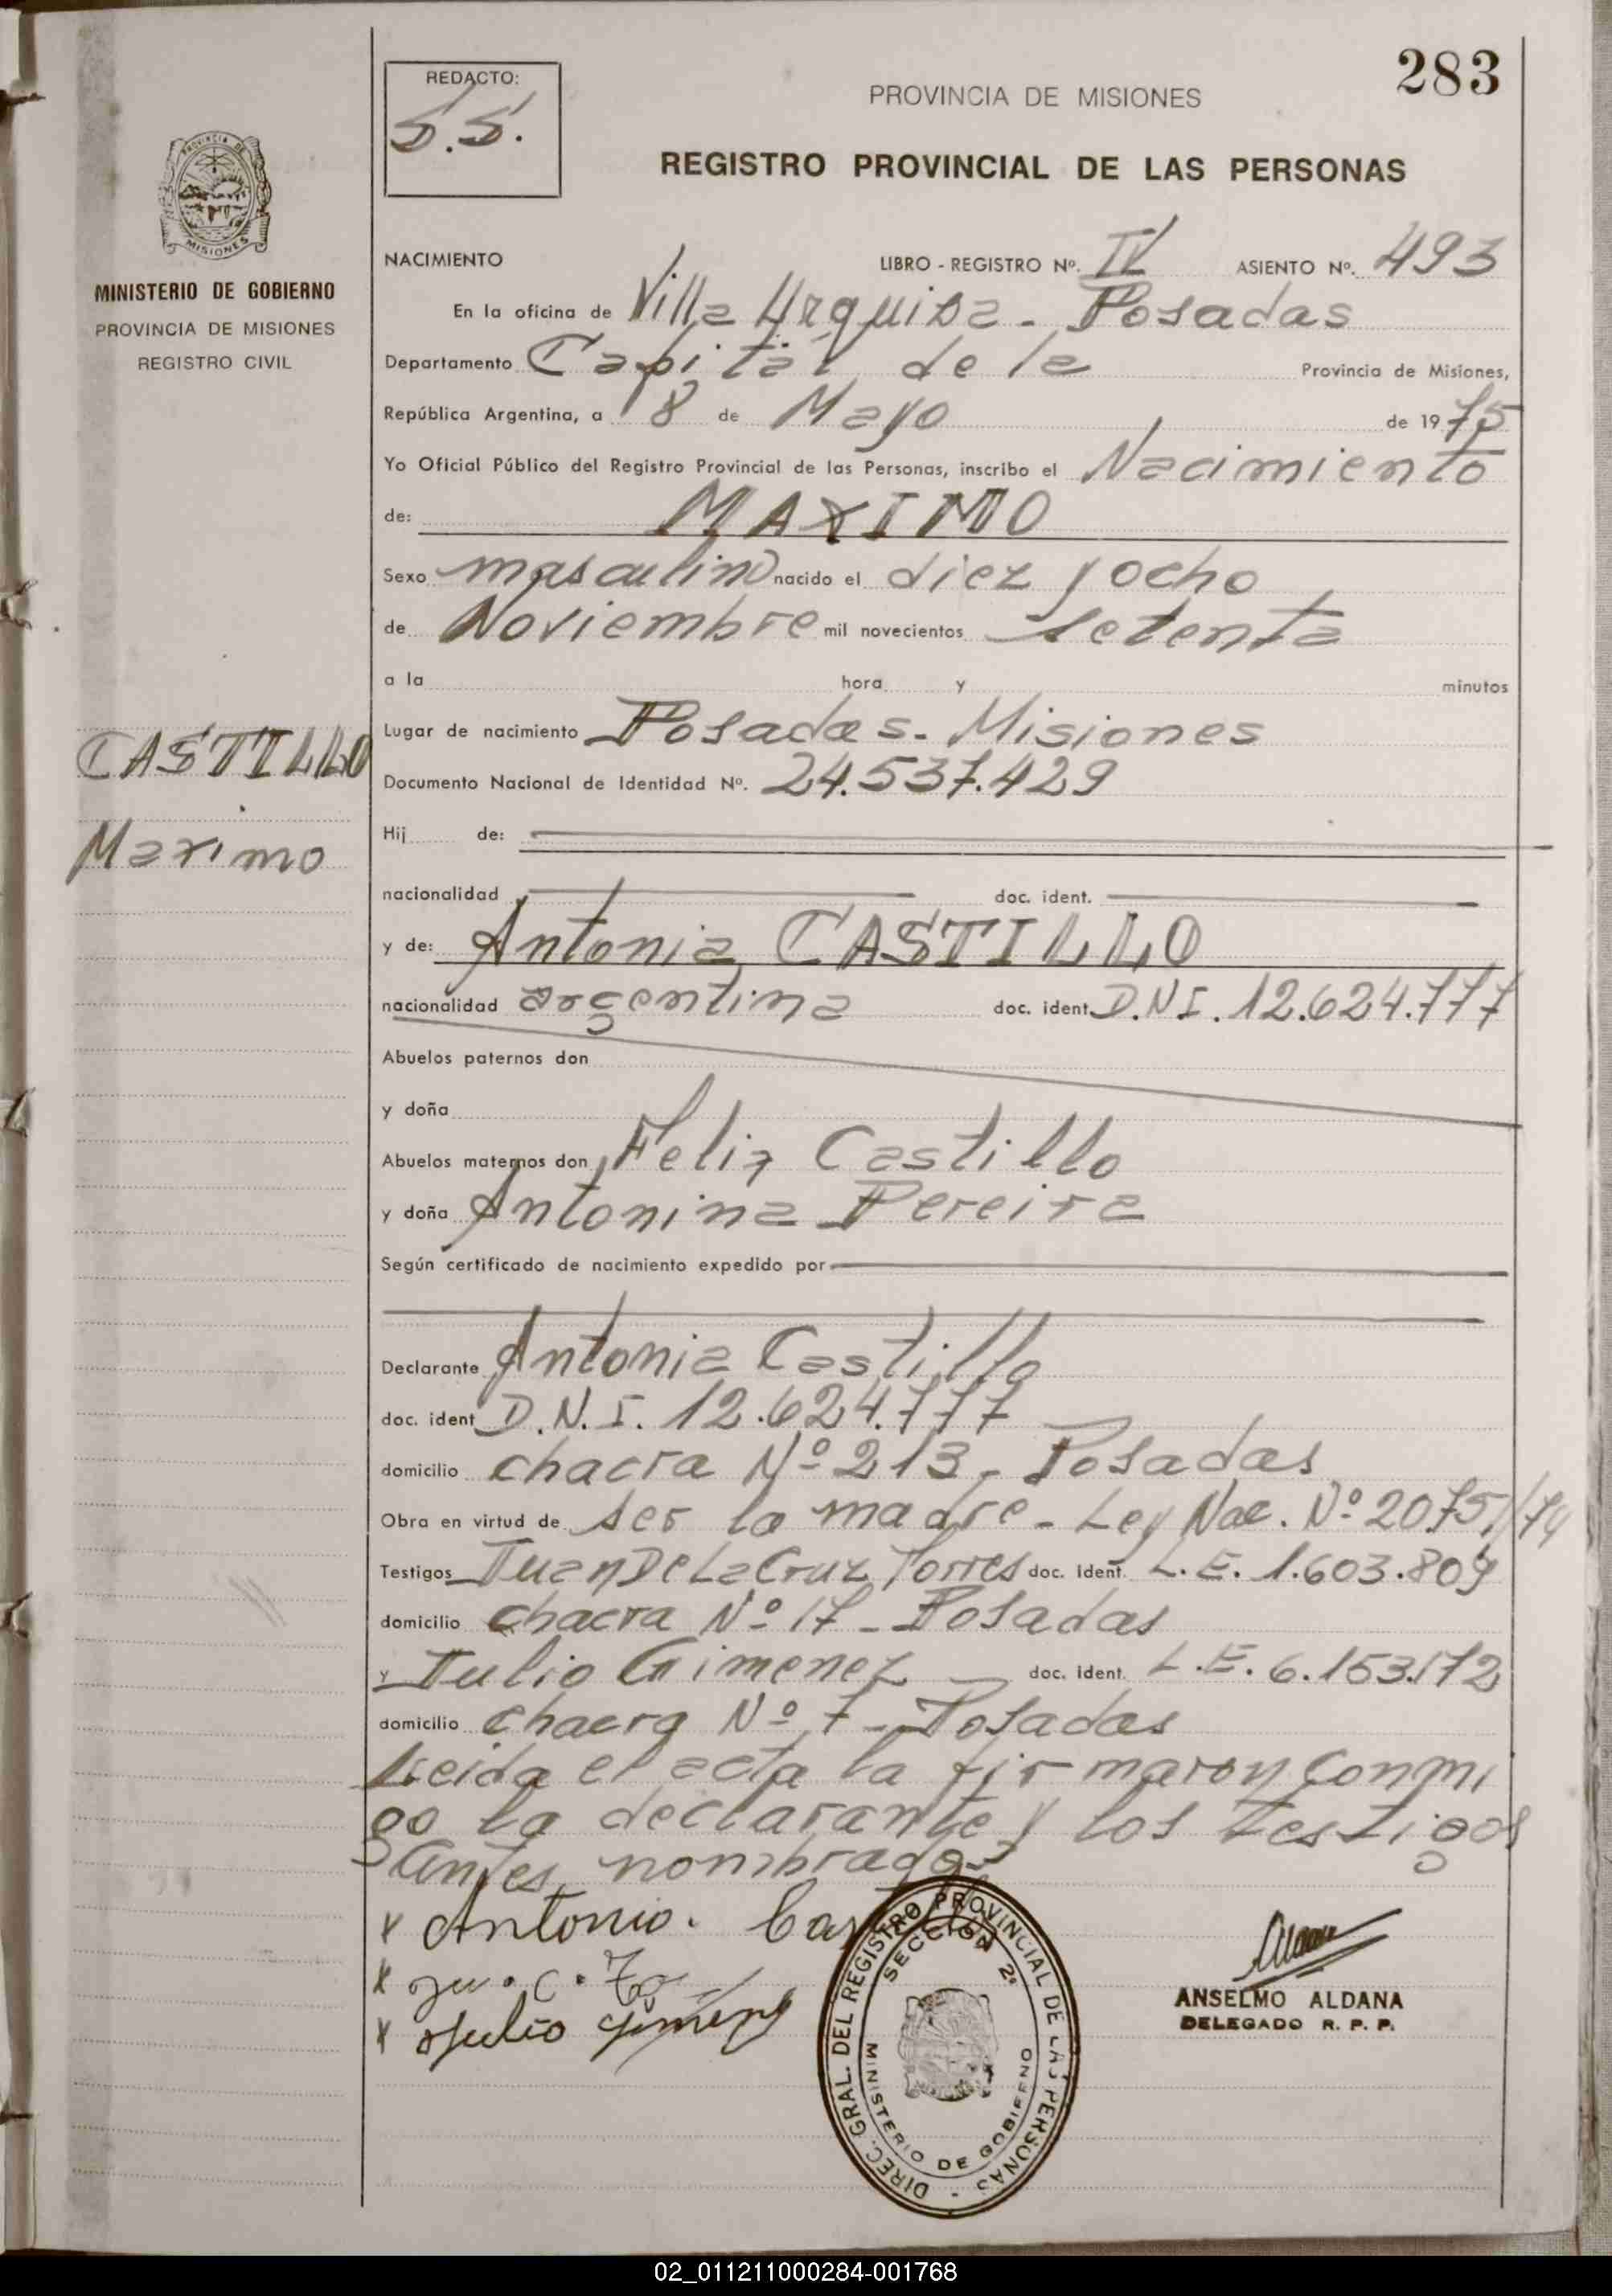 283
REDACTO:
S.S.
PROVINCIA DE MISIONES
REGISTRO PROVINCIAL DE LAS PERSONAS
PROVINCIA DE MISIONES
MINISTERIO DE GOBIERNO
PROVINCIA DE MISIONES
REGISTRO CIVIL
NACIMIENTO LIBRO - REGISTRO Nº. IV ASIENTO Nº. 493
En la oficina de Villa Urquiza - Posadas
Departamento Capital de la Provincia de Misiones,
República Argentina, a 8 de Mayo de 1975
Yo Oficial Público del Registro Provincial de las Personas, inscribo el Nacimiento
de: MAXIMO
Sexo masculino nacido el diez y ocho
de Noviembre mil novecientos setenta
a la hora y minutos
Lugar de nacimiento Posadas - Misiones
CASTILLO
Documento Nacional de Identidad Nº. 24.537.429
Maximo
Hij de:
nacionalidad doc. ident.
y de: Antonia CASTILLO
nacionalidad argentina doc. ident. D.N.I. 12.624.777
Abuelos paternos don
y doña
Abuelos maternos don Feliz Castillo
y doña Antonina Pereira
Según certificado de nacimiento expedido por
Declarante Antonia Castillo
doc. ident D.N.I. 12.624.777
domicilio chacra Nº 213 - Posadas
Obra en virtud de ser la madre - Ley Nac. Nº 20.751/74
Testigos Juan De La Cruz Torres doc. ident. L.E. 1.603.809
domicilio chacra Nº 17 - Posadas
y Julio Gimenez - doc. ident. L.E. 6.153.172
domicilio chacra Nº 7 - Posadas
Leida el acta la firmaron conmi
go la declarante y los testigos
antes nombrados
x Antonio.
x Ju. C.
x Julio Gimenez
DIREC. GRAL. DEL REGISTRO PROVINCIAL DE LAS PERSONAS -
SECCION 2ª
MINISTERIO DE GOBIERNO
ANSELMO ALDANA
DELEGADO R. P. P.
02_011211000284-001768